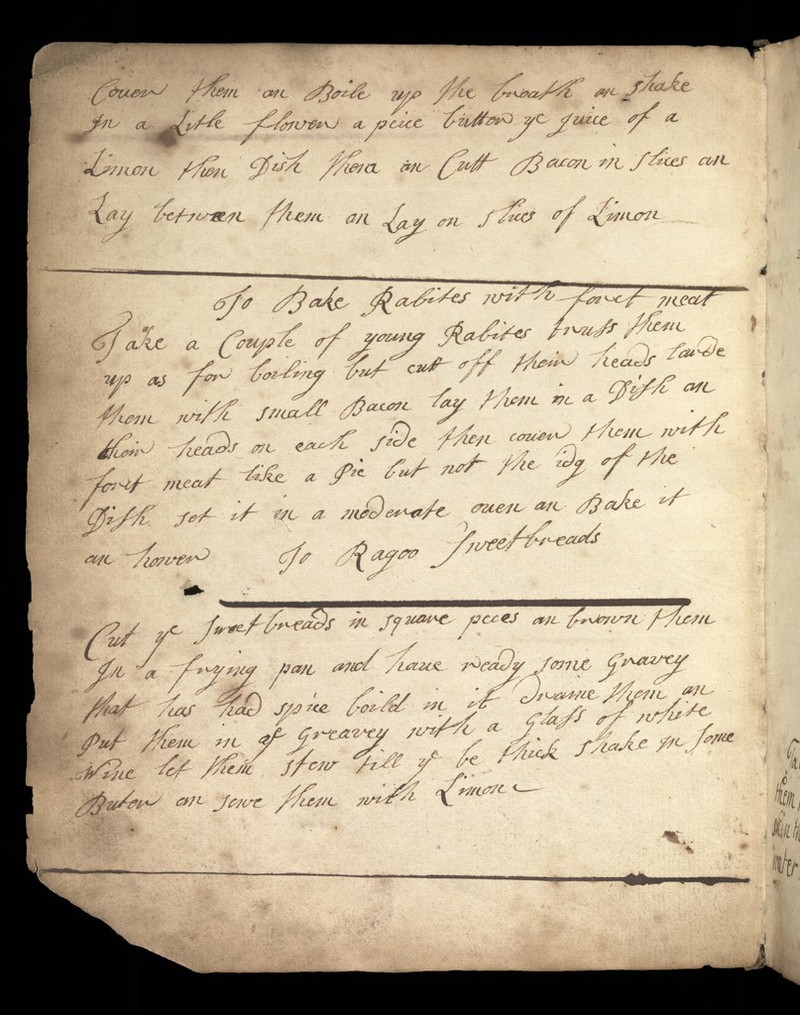 Couer them an Boile up the breath an shake
In a Litle flower a peice butter ye juice of a
Limon then Dish them an Cutt Bacon in slices an
Lay between them an Lay on slices of Limon
To Bake Rabites with forct meat
Take a Couple of young Rabites truss them
up as for boiling but cutt off their heads larde
them with small Bacon lay them in a Dish an
their heads on each side then couer them with
forct meat like a Pie but not the idg of the
Dish set it in a moderate ouen an Bake it
an hower
To Ragoo Sweetbreads
Cut ye Sweetbreads in square peces an brown them
In a frying pan and haue ready some Gravey
that has had spice boild in it Draine them an
Put them in ye Greavey with a Glass of white
Wine let them stew till ye be thick shake in some
Buter an serve them with Limon
Ta
them
water